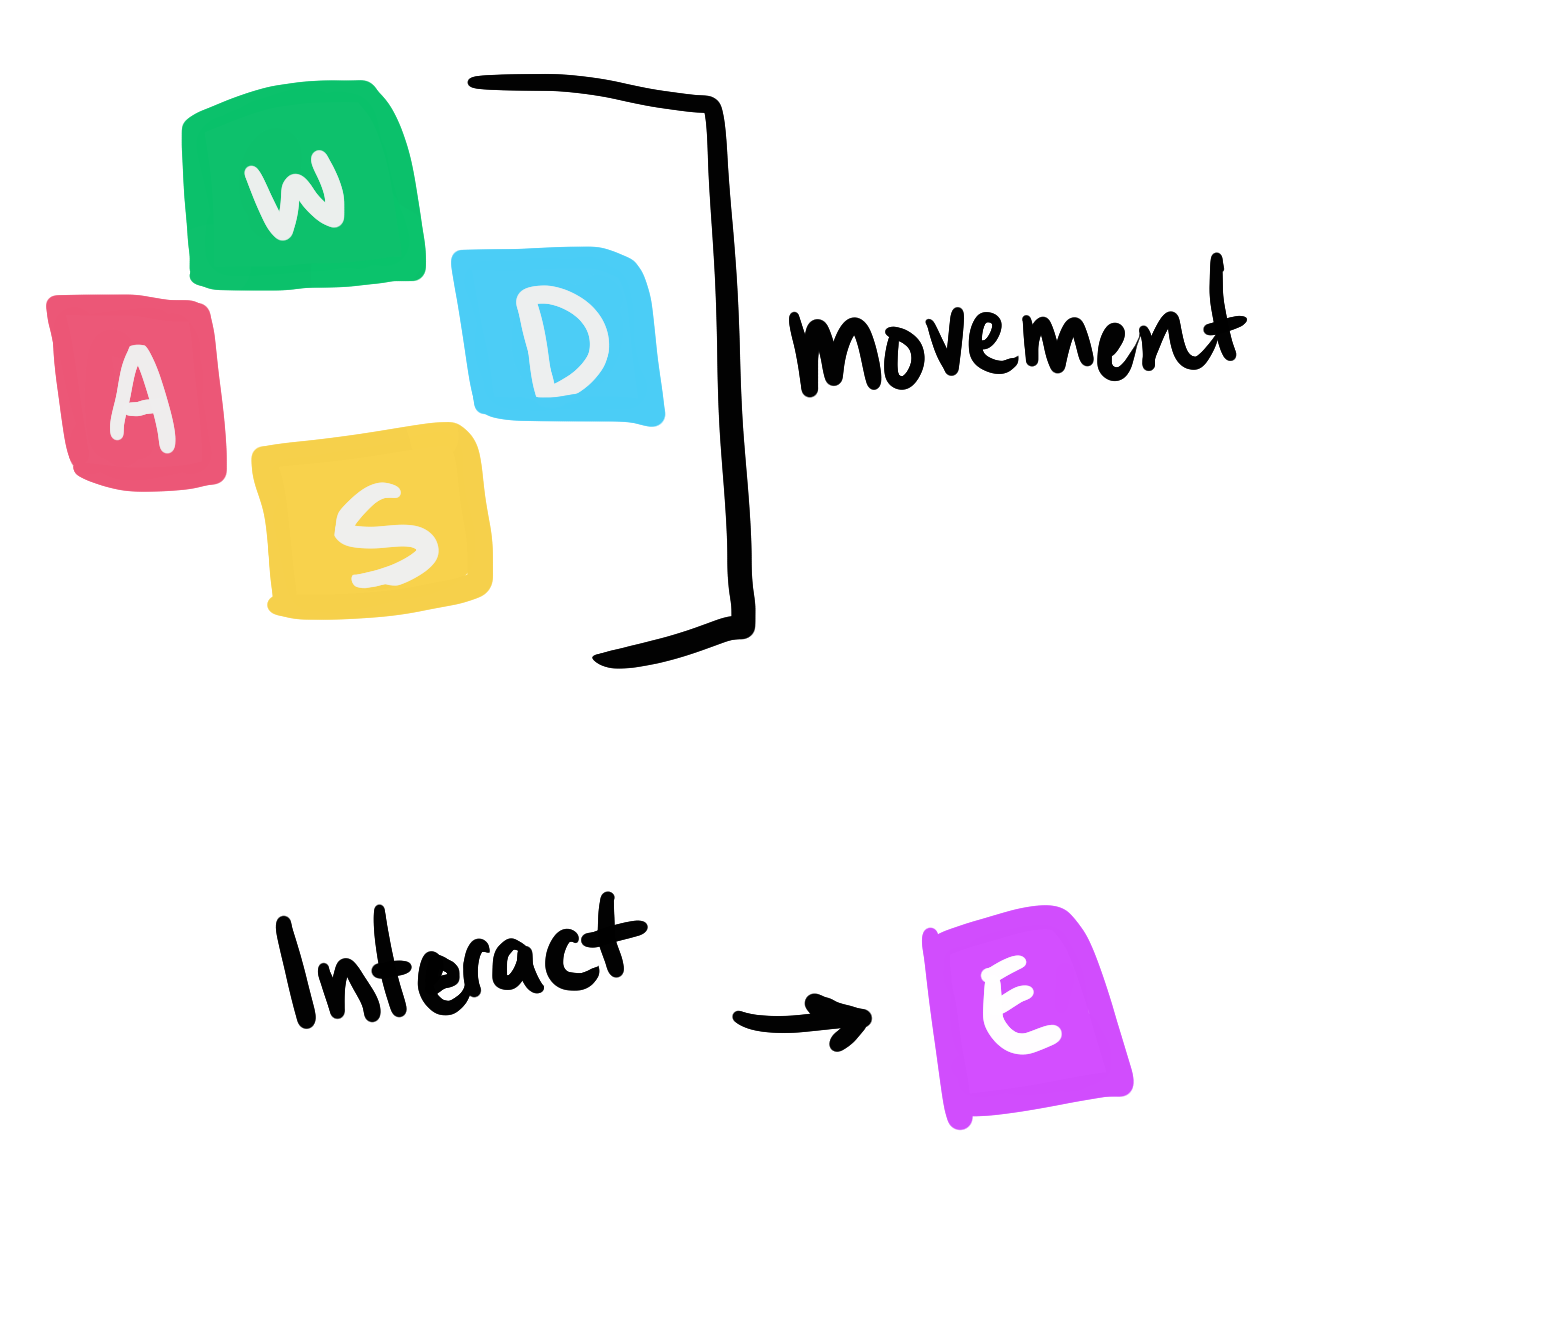 W
A
D
movement
S
Interact
E